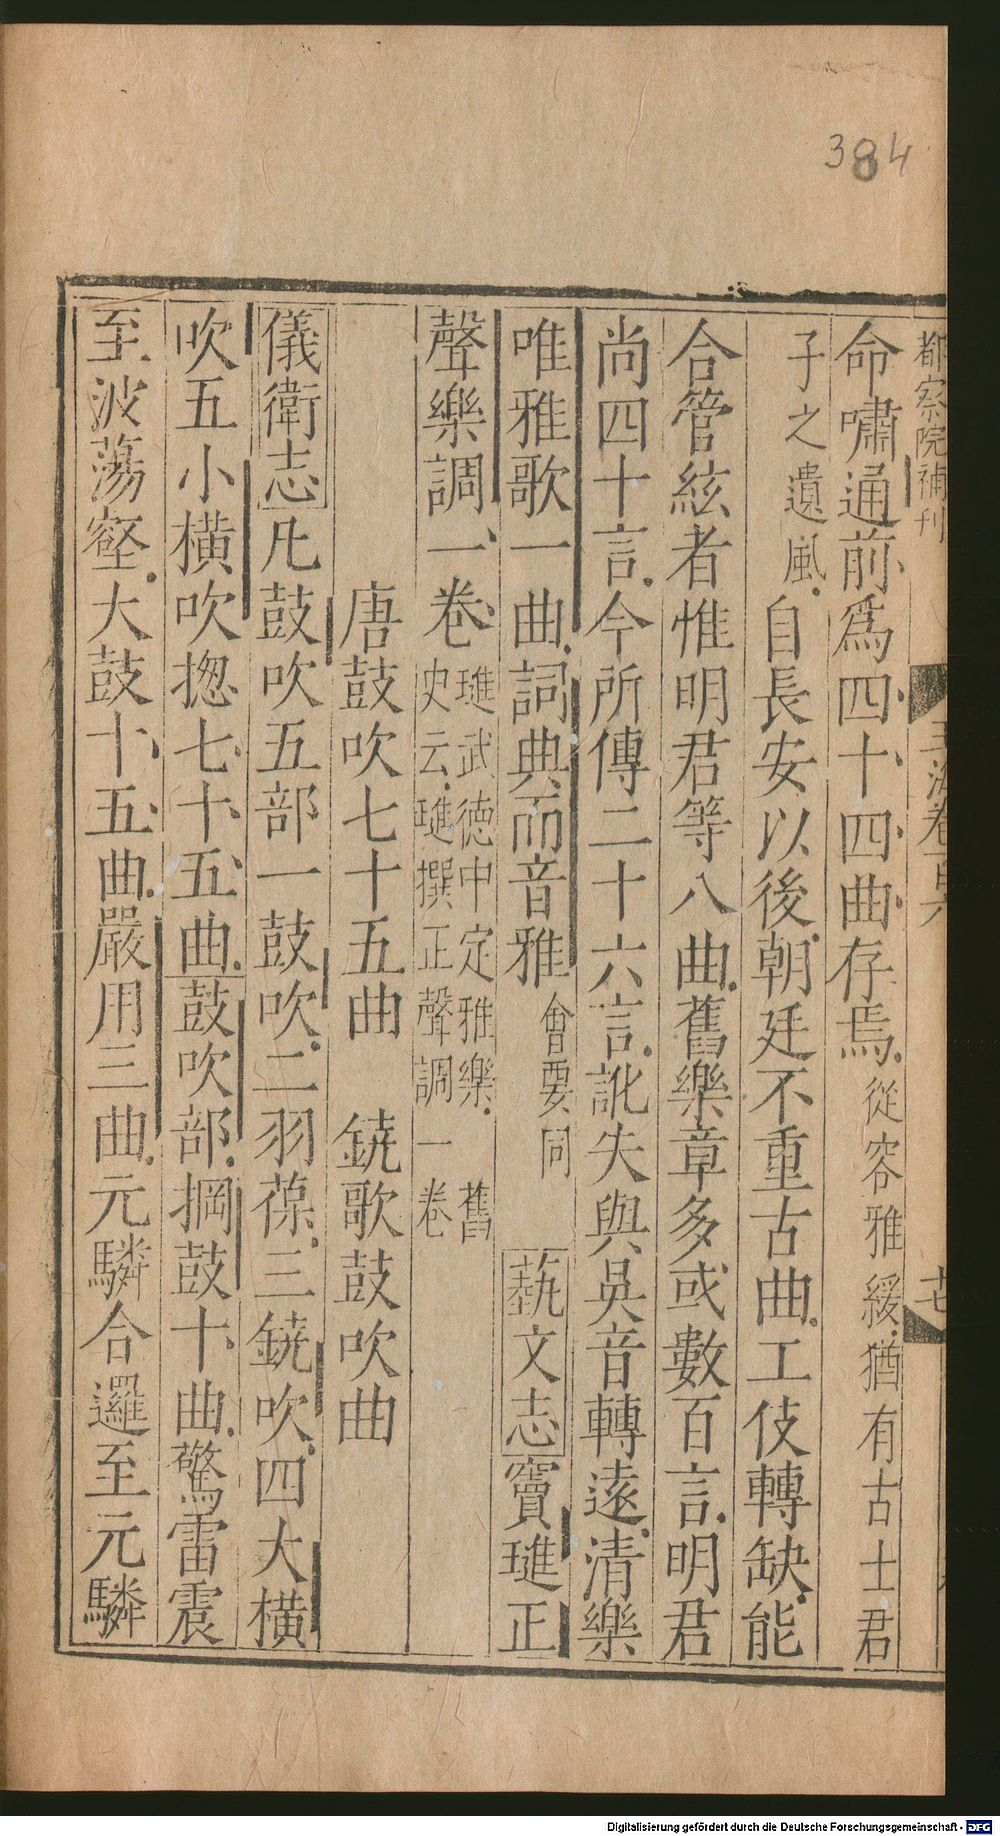 384
都察院補刊 玉海卷百六 廿七
命嘯通前爲四十四曲存焉從容雅緩猶有古士君
子之遺風自長安以後朝廷不重古曲工伎轉缺能
合管絃者惟明君等八曲舊樂章多或數百言明君
尚四十言今所傳二十六言訛失與吳音轉遠清樂
唯雅歌一曲詞典而音雅會要同 藝文志竇璡正
聲樂調一卷璡武德中定雅樂 舊
史云璡撰正聲調一卷
唐鼓吹七十五曲 鐃歌鼓吹曲
儀衛志凡鼓吹五部一鼓吹二羽葆三鐃吹四大橫
吹五小橫吹揔七十五曲鼓吹部掆鼓十曲驚雷震
至波蕩壑大鼓十五曲嚴用三曲元驎合邏至元驎
Digitalisierung gefördert durch die Deutsche Forschungsgemeinschaft - DFG